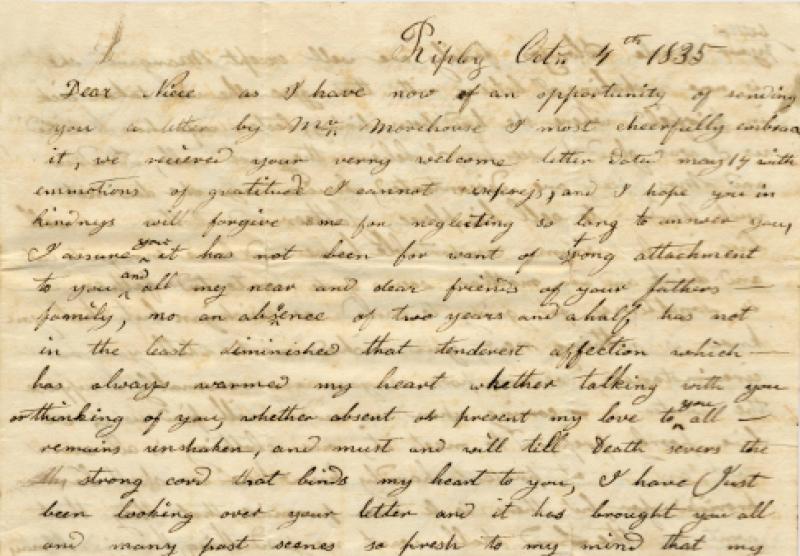 Ripley Octr 4th 1835
Dear Niece as I have now of an opportunity of sending
you a letter by Mr. Morehouse I most cheerfully embrace
it, we recieved your verry welcome letter dated may 14 with
emmotions of gratitud I cannot express, and I hope you in
kindness will forgive me for neglecting so long to answer you,
I assure you it has not been for want of strong attachment
to you and all my near and dear friends of your fathers —
family, no an absence of two years and a half, has not
in the least diminished that tenderest affection which —
has always warmed my heart whether talking with you
or thinking of you, whether absent or present my love to you all —
remains unshaken, and must and will till Death severs the
strong cord that binds my heart to you, I have Just
been looking over your letter and it has brought you all
and many past scenes so fresh to my mind that my